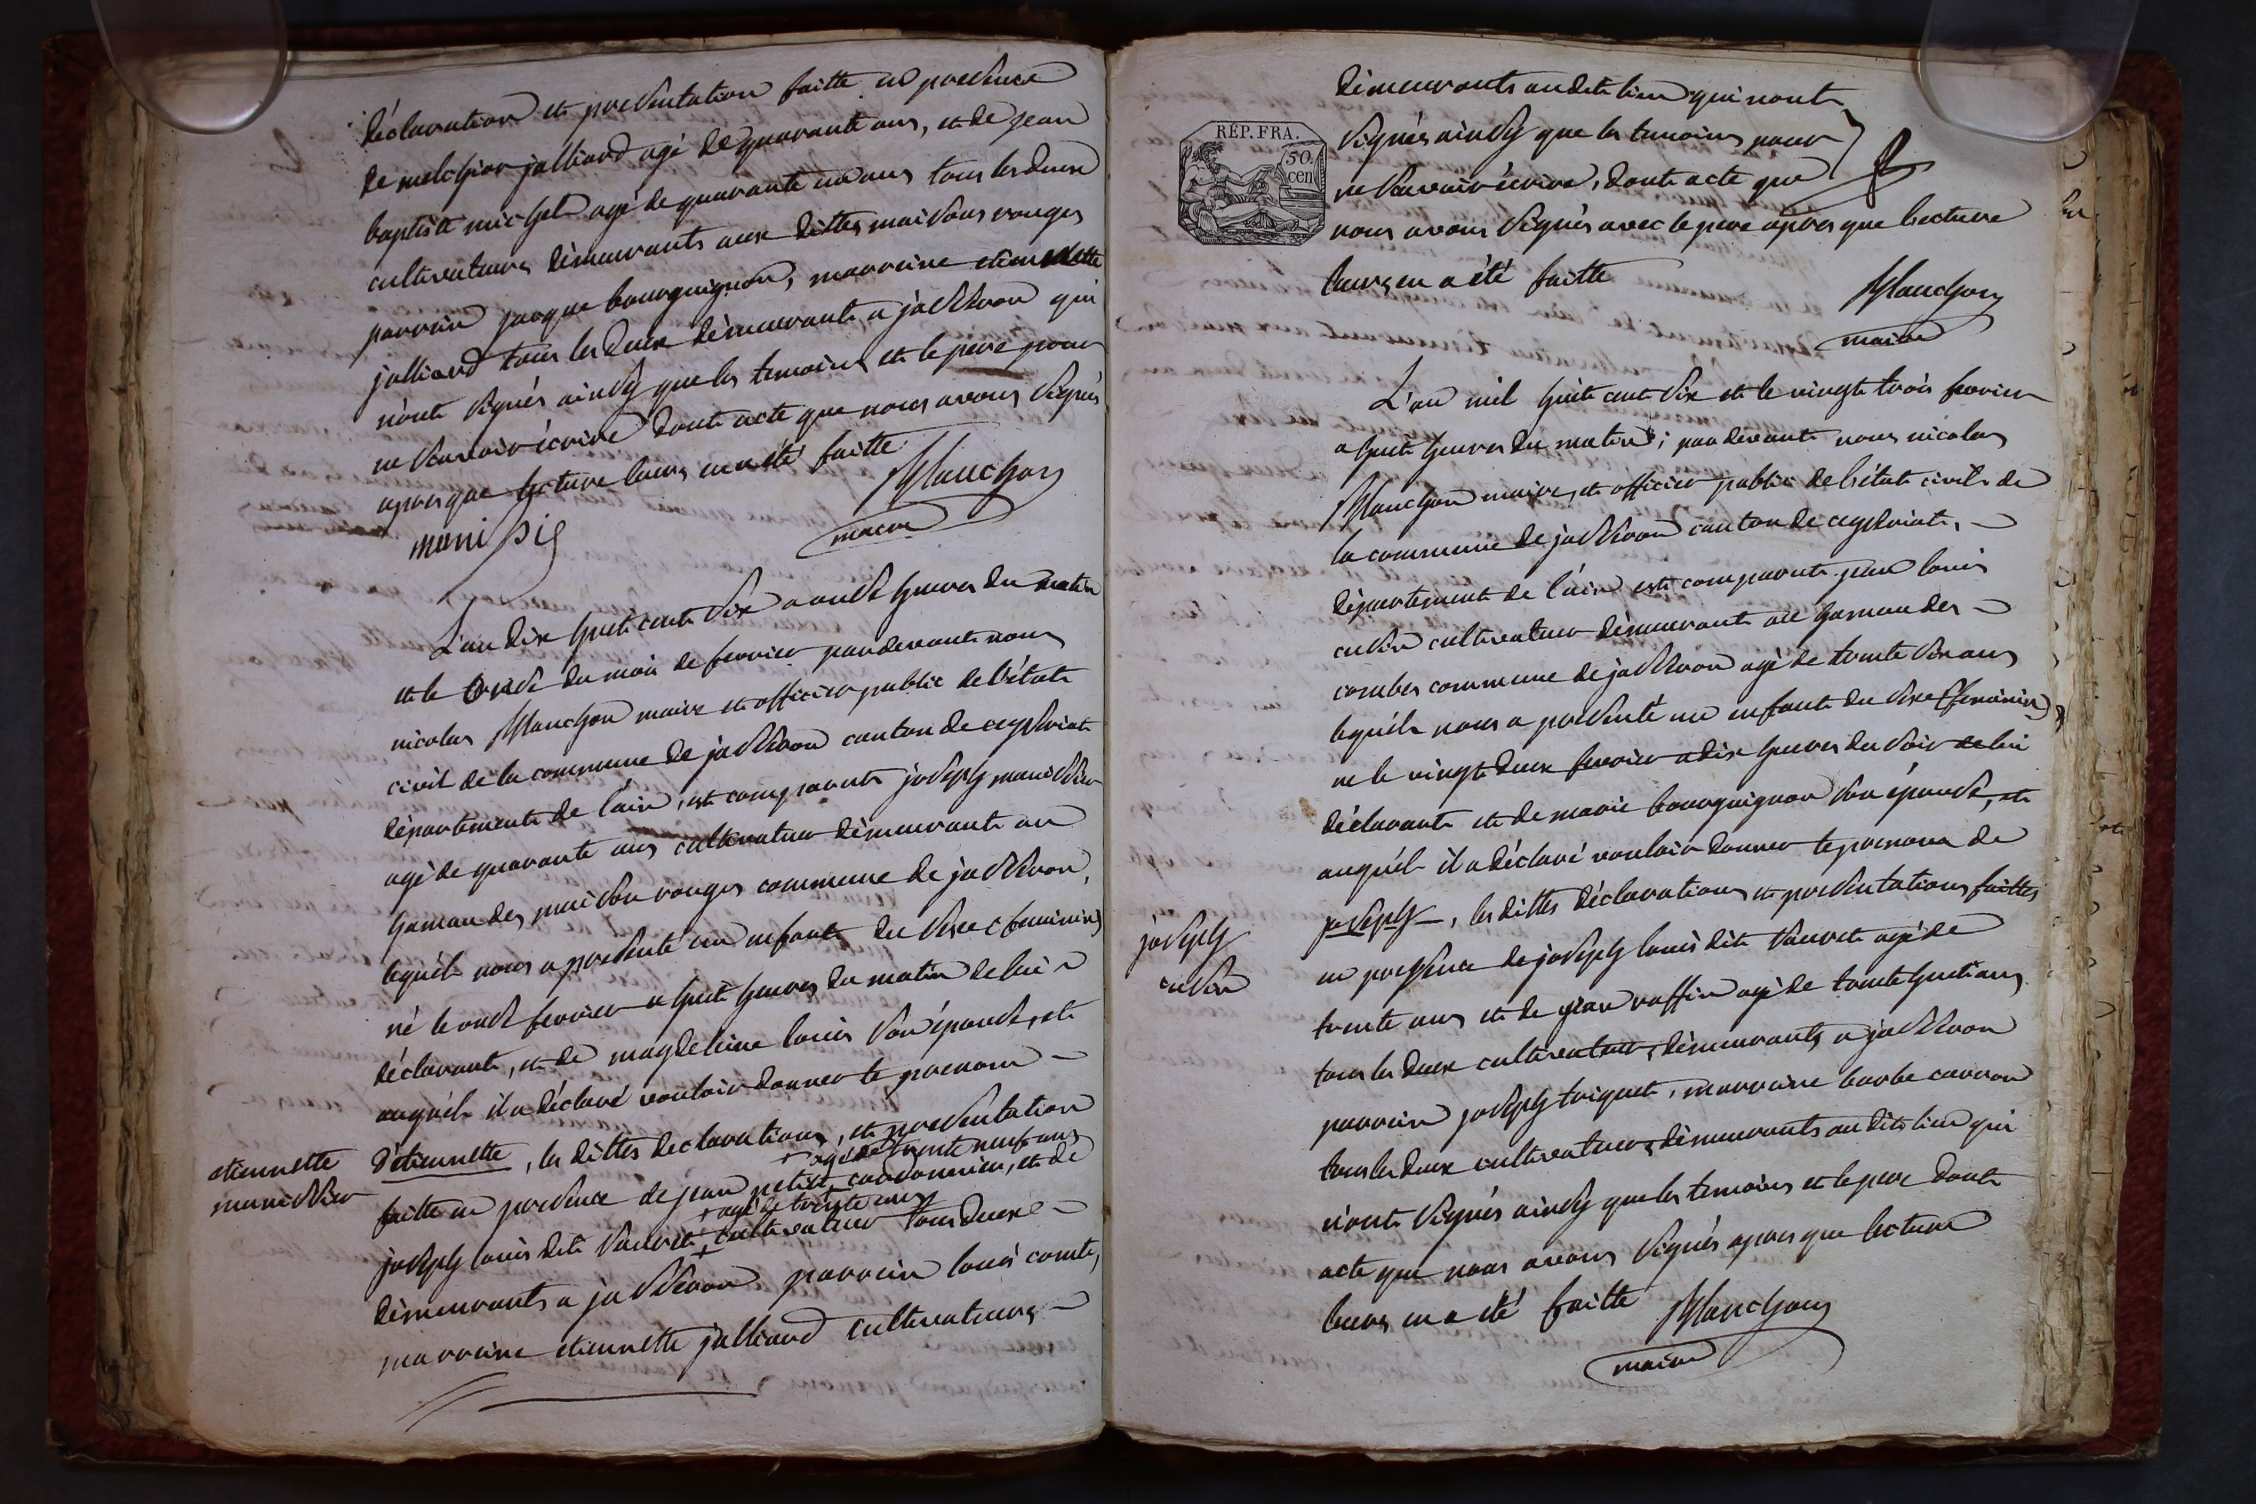 déclaration et presentation faitte en presence
de melchior jalliard agé de quarante ans, et de jean
baptiste michel agé de quarante un ans tous les deux
cultivateurs démeurants aux dittes maisons rouges
parrain jacque bourguignon, marraine etiennette
jalliard tous les deux démeurants a jasseron qui
n'ont signés ainsy que les temoins et le pere pour
ne scavoir écrire dont acte que nous avons signés
apres que lecture leurs en a été faitte
Manchon
maire
L'an dix huit cent dix a onze heures du matin
et le onze du mois de fevrier pardevant nous
nicolas Manchon maire et officier public de l'état
civil de la commune de jasseron canton de ceyseriat
département de l'ain, est comparut joseph manissier
agé de quarante ans cultivateur démeurant au
hameau des maison rouges commune de jasseron,
lequél nous a presenté un enfant du sexe (feminin)
né le onze fevrier a huit heures du matin de lui
déclarant, et de magdeleine louis son épouse, et
auquél il a déclaré vouloir donner le prenom
etiennette
manissier
d'etiennette, les dittes declarations, et presentation
+ agé de trente neuf ans
faitte en presence de jean petit cordonnier, et de
+ agé de trente ans
joseph louis dit sauvet + cultivateur tous deux
démeurants a jasseron parrain louis comte,
marraine etiennette jalliard cultivateurs
RÉP. FRA.
50.
cen
démeurants audit lieu qui n'ont
signés ainsy que les temoins pour
ne scavoir écrire, dont acte que
nous avons signés avec le pere apres que lecture
leurs en a été faitte
Manchon
maire
L'an mil huit cent dix et le vingt trois fevrier
a huit heures du matin; par devant nous nicolas
Manchon maire, et officier public de l'état civil de
la commune de jasseron canton de ceyseriat,
département de l'ain est comparut jean louis
cusin cultivateur démeurant au hameau des
combes commune de jasseron agé de trente six ans
lequél nous a presenté un enfant du sexe (feminin)
ne le vingt deux fevrier a dix heures du soir de lui
déclarant et de marie bourguignon son épouse, et
auquél il a déclaré vouloir donner le prenom de
joseph
cusin
joseph, les dittes déclarations et presentations faittes
en presence de joseph louis dit sauvet agé de
trente ans et de jean ruffin agé de trente huit ans
tous les deux cultivateurs, démeurants a jasseron
parrain joseph triquet, marraine barbe carron
tous les deux cultivateurs démeurants audit lieu qui
n'ont signés ainsy que les temoins et le pere dont
acte que nous avons signés apres que lecture
leurs en a été faitte Manchon
maire